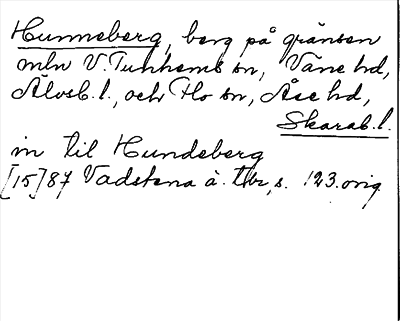 Hunneberg, berg på gränsen
mln V. Tunhems sn, Väne hd,
Älvsb. l., och Flo sn, Åse hd,
Skarab. l.
in til Hundeberg
[15]87 Vadstena ä. Tb, s. 123. orig.